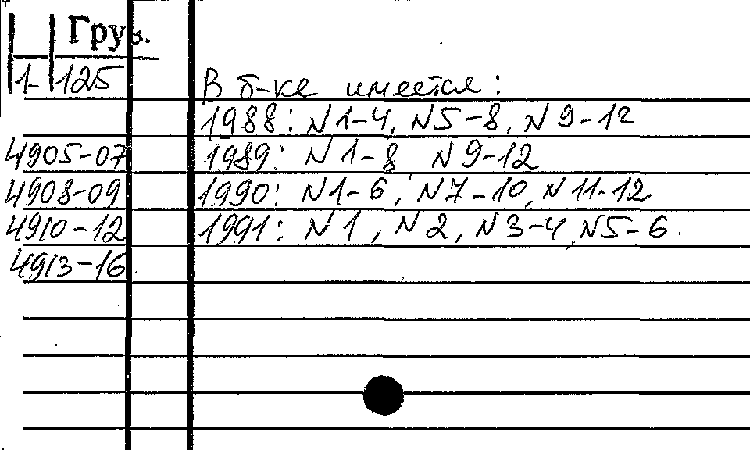 Груз.
1-125 В б-ке имеется:
1988: N1-4, N5-8, N9-12
4905-07 1989: N1-8 N9-12
4908-09 1990: N1-6, N7-10, N11-12
4910-12 1991: N1, N2, N3-4, N5-6.
4913-16